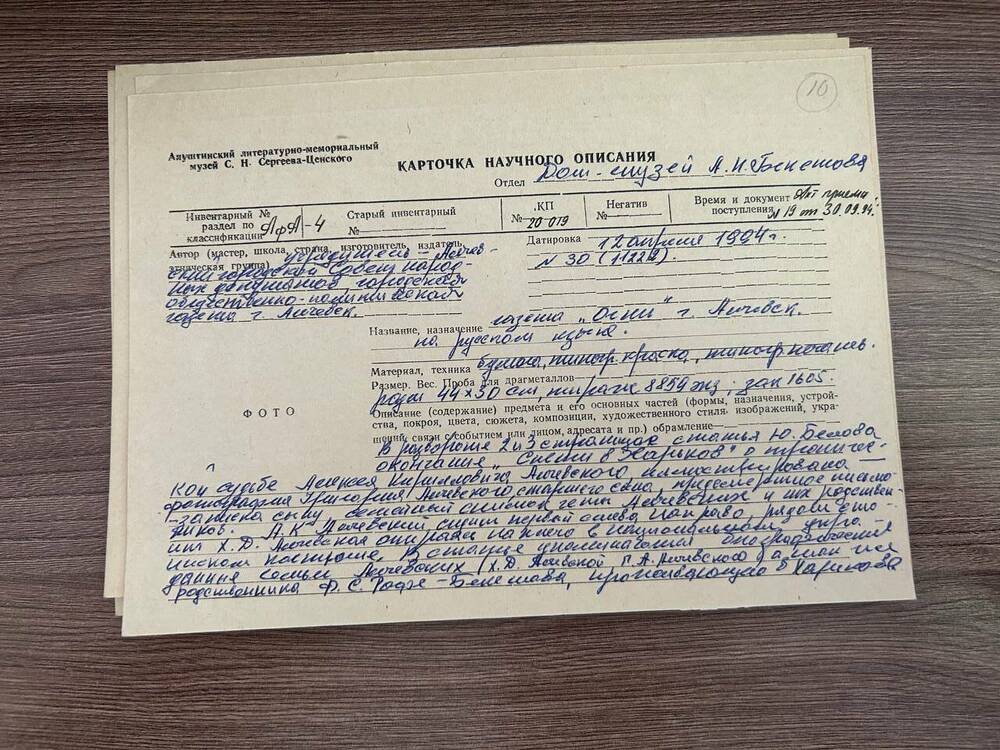 10
Алуштинский литературно-мемориальный
музей С. Н. Сергеева-Ценского
КАРТОЧКА НАУЧНОГО ОПИСАНИЯ
Отдел Дом-музей А.Н. Бекетова
Инвентарный №
раздел по
классификации АфА-4
Старый инвентарный
№
КП
№ 20 019
Негатив
№
Время и документ Акт приема
поступления N 19 от 30.09.94г.
Автор (мастер, школа, страна, изготовитель, издатель,
этническая группа) учредитель – Алчев-
ский городской Совет народ-
ных депутатов, городская
общественно-политическая
газета г. Алчевск.
Датировка 12 апреля 1994 г.
N 30 (11228).
Название, назначение газета „Огни" г. Алчевск.
на русском языке.
Материал, техника бумага, типогр. краска, типогр. печать.
Размер. Вес. Проба для драгметаллов
разм 44×30 см, тираж 8854 экз; зак 1605.
ФОТО
Описание (содержание) предмета и его основных частей (формы, назначения, устрой-
ства, покроя, цвета, сюжета, композиции, художественного стиля изображений, укра-
шений, связи с событием или лицом, адресата и пр.) обрамление
В развороте 2 и 3 страницах статья Ю. Белова
окончание „Спеши в Харьков" о трагичес-
кой судьбе Алексея Кирилловича Алчевского иллюстрирована
фотография Григория Алчевского старшего сына, предсмертное письмо
-записка сыну, семейный снимок четы Алчевских и их родствен-
ников. А.К. Алчевский сидит первый слева направо, рядом сто-
ит Х.Д. Алчевская опираясь на него в национальном укра-
инском костюме. В статье упоминаются биографические
данные семьи Алчевских (Х.Д. Алчевской, Г.А. Алчевского, а также
родственника Ф.С. Рофе-Бекетова, проживающего в Харькове